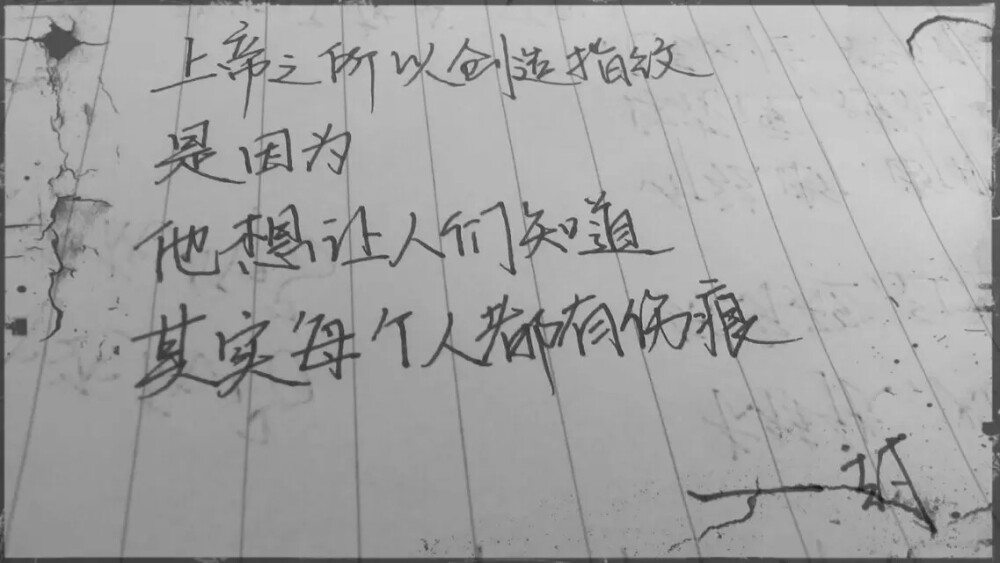 上帝之所以创造指纹
是因为
他想让人们知道
其实每个人都有伤痕